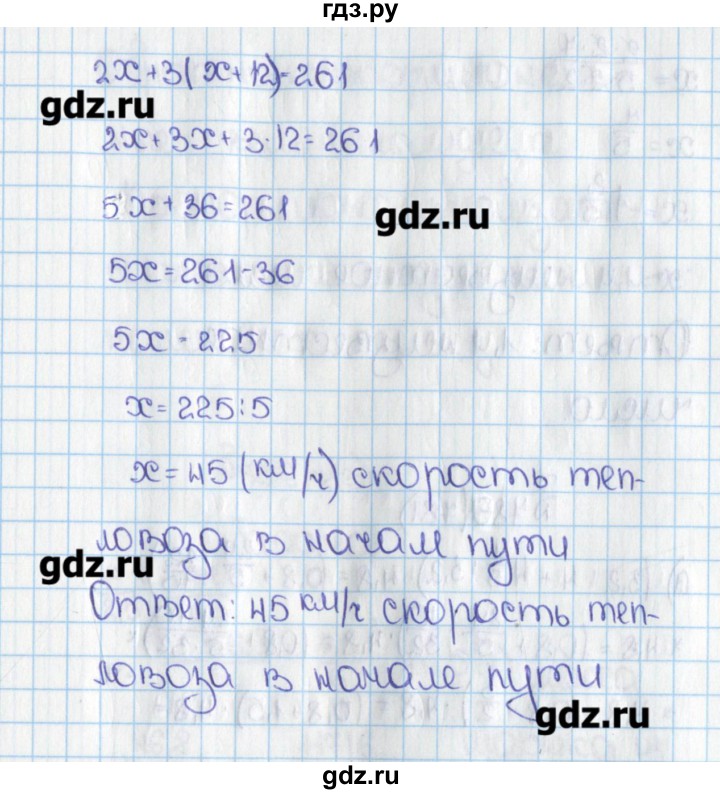 гдз.ру
2x+3(x+12)=261
gdz.ru
2x+3x+3·12=261
5x+36=261
gdz.ru
5x=261-36
5x=225
x=225:5
x=45 (км/ч) скорость теп-
ловоза в начам пути
gdz.ru
Ответ: 45 км/ч скорость теп-
ловоза в начале пути
gdz.ru
gdz.ru